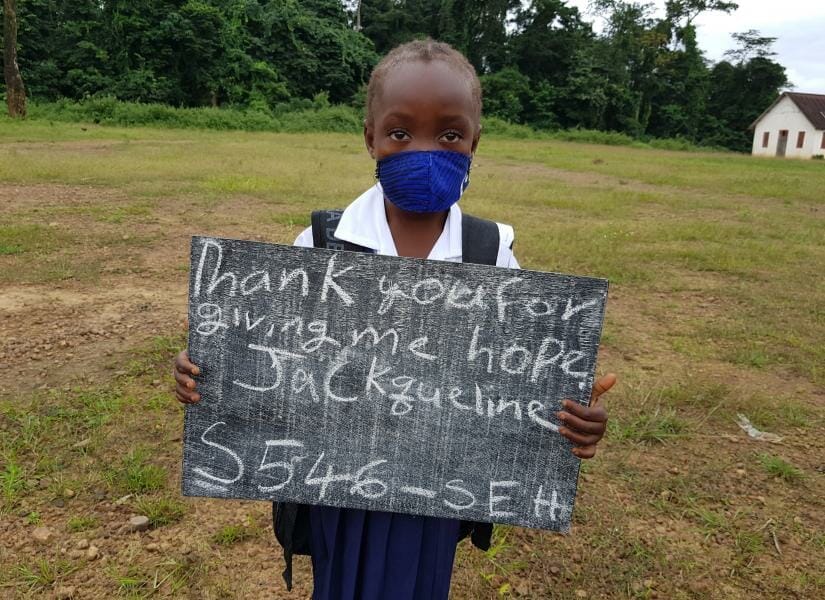 Thank you for
giving me hope,
Jackqueline
S546-SEH